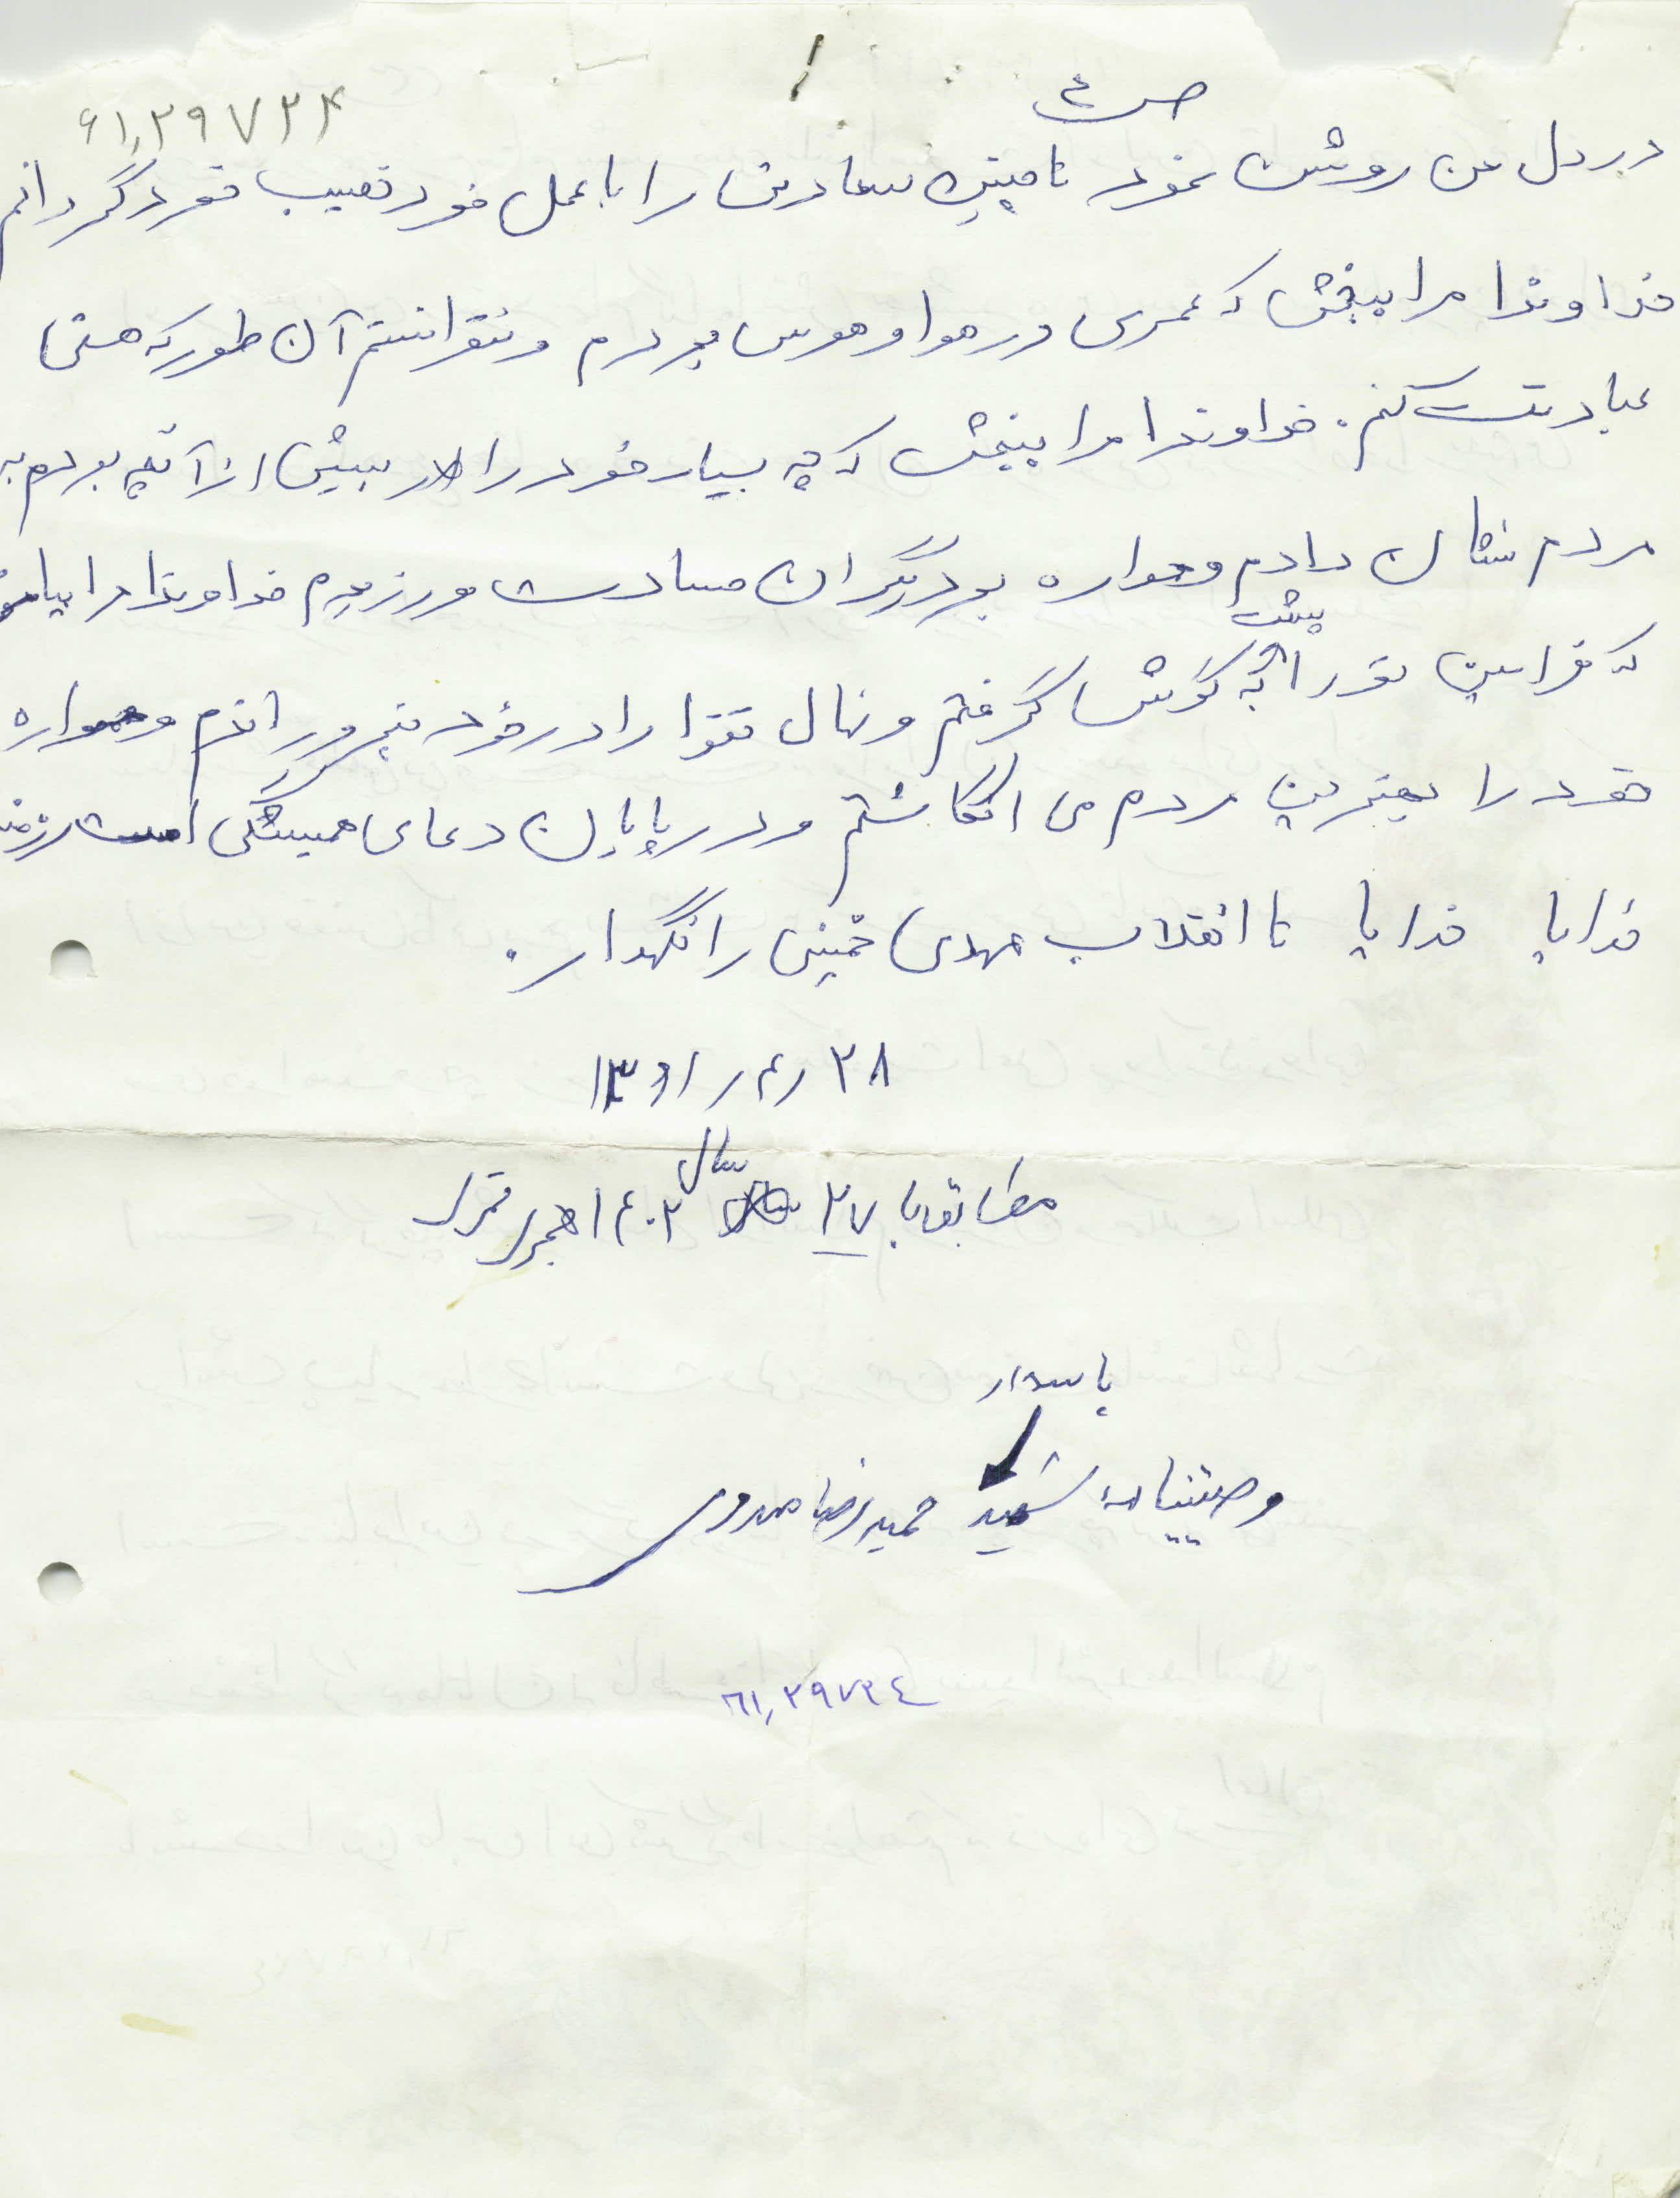 ص ٤
۶۱٫۲۹۷۲۴
در دل من روشن نمود تا چنین سعادتی را با عمل خود نصیب خود گردانم
خداوندا مرا ببخش که عمری در هوا و هوس بودم و نتوانستم آن طور که هستی
عبادتت کنم. خداوندا مرا ببخش که چه بسیار خود را بیش از آنچه بودم به
مردم نشان دادم و همواره بر دیگران حسادت ورزیدم خداوندا مرا بیامرز
که فرامین تو را پشت گوش گرفتم و نهال تقوا را در خود نپروراندم و همواره
خود را بهترین مردم می انگاشتم و در پایان دعای همیشگی امت رزمنده
خدایا خدایا تا انقلاب مهدی خمینی را نگهدار.
۲۸ ر ۴ ر ۱۳۶۱
مطابق با ۲۷ سال ۱۴۰۲ هجری قمری
پاسدار
وصیتنامه شهید حمیدرضا مهدوی
٦١٫٢٩٧٢٤